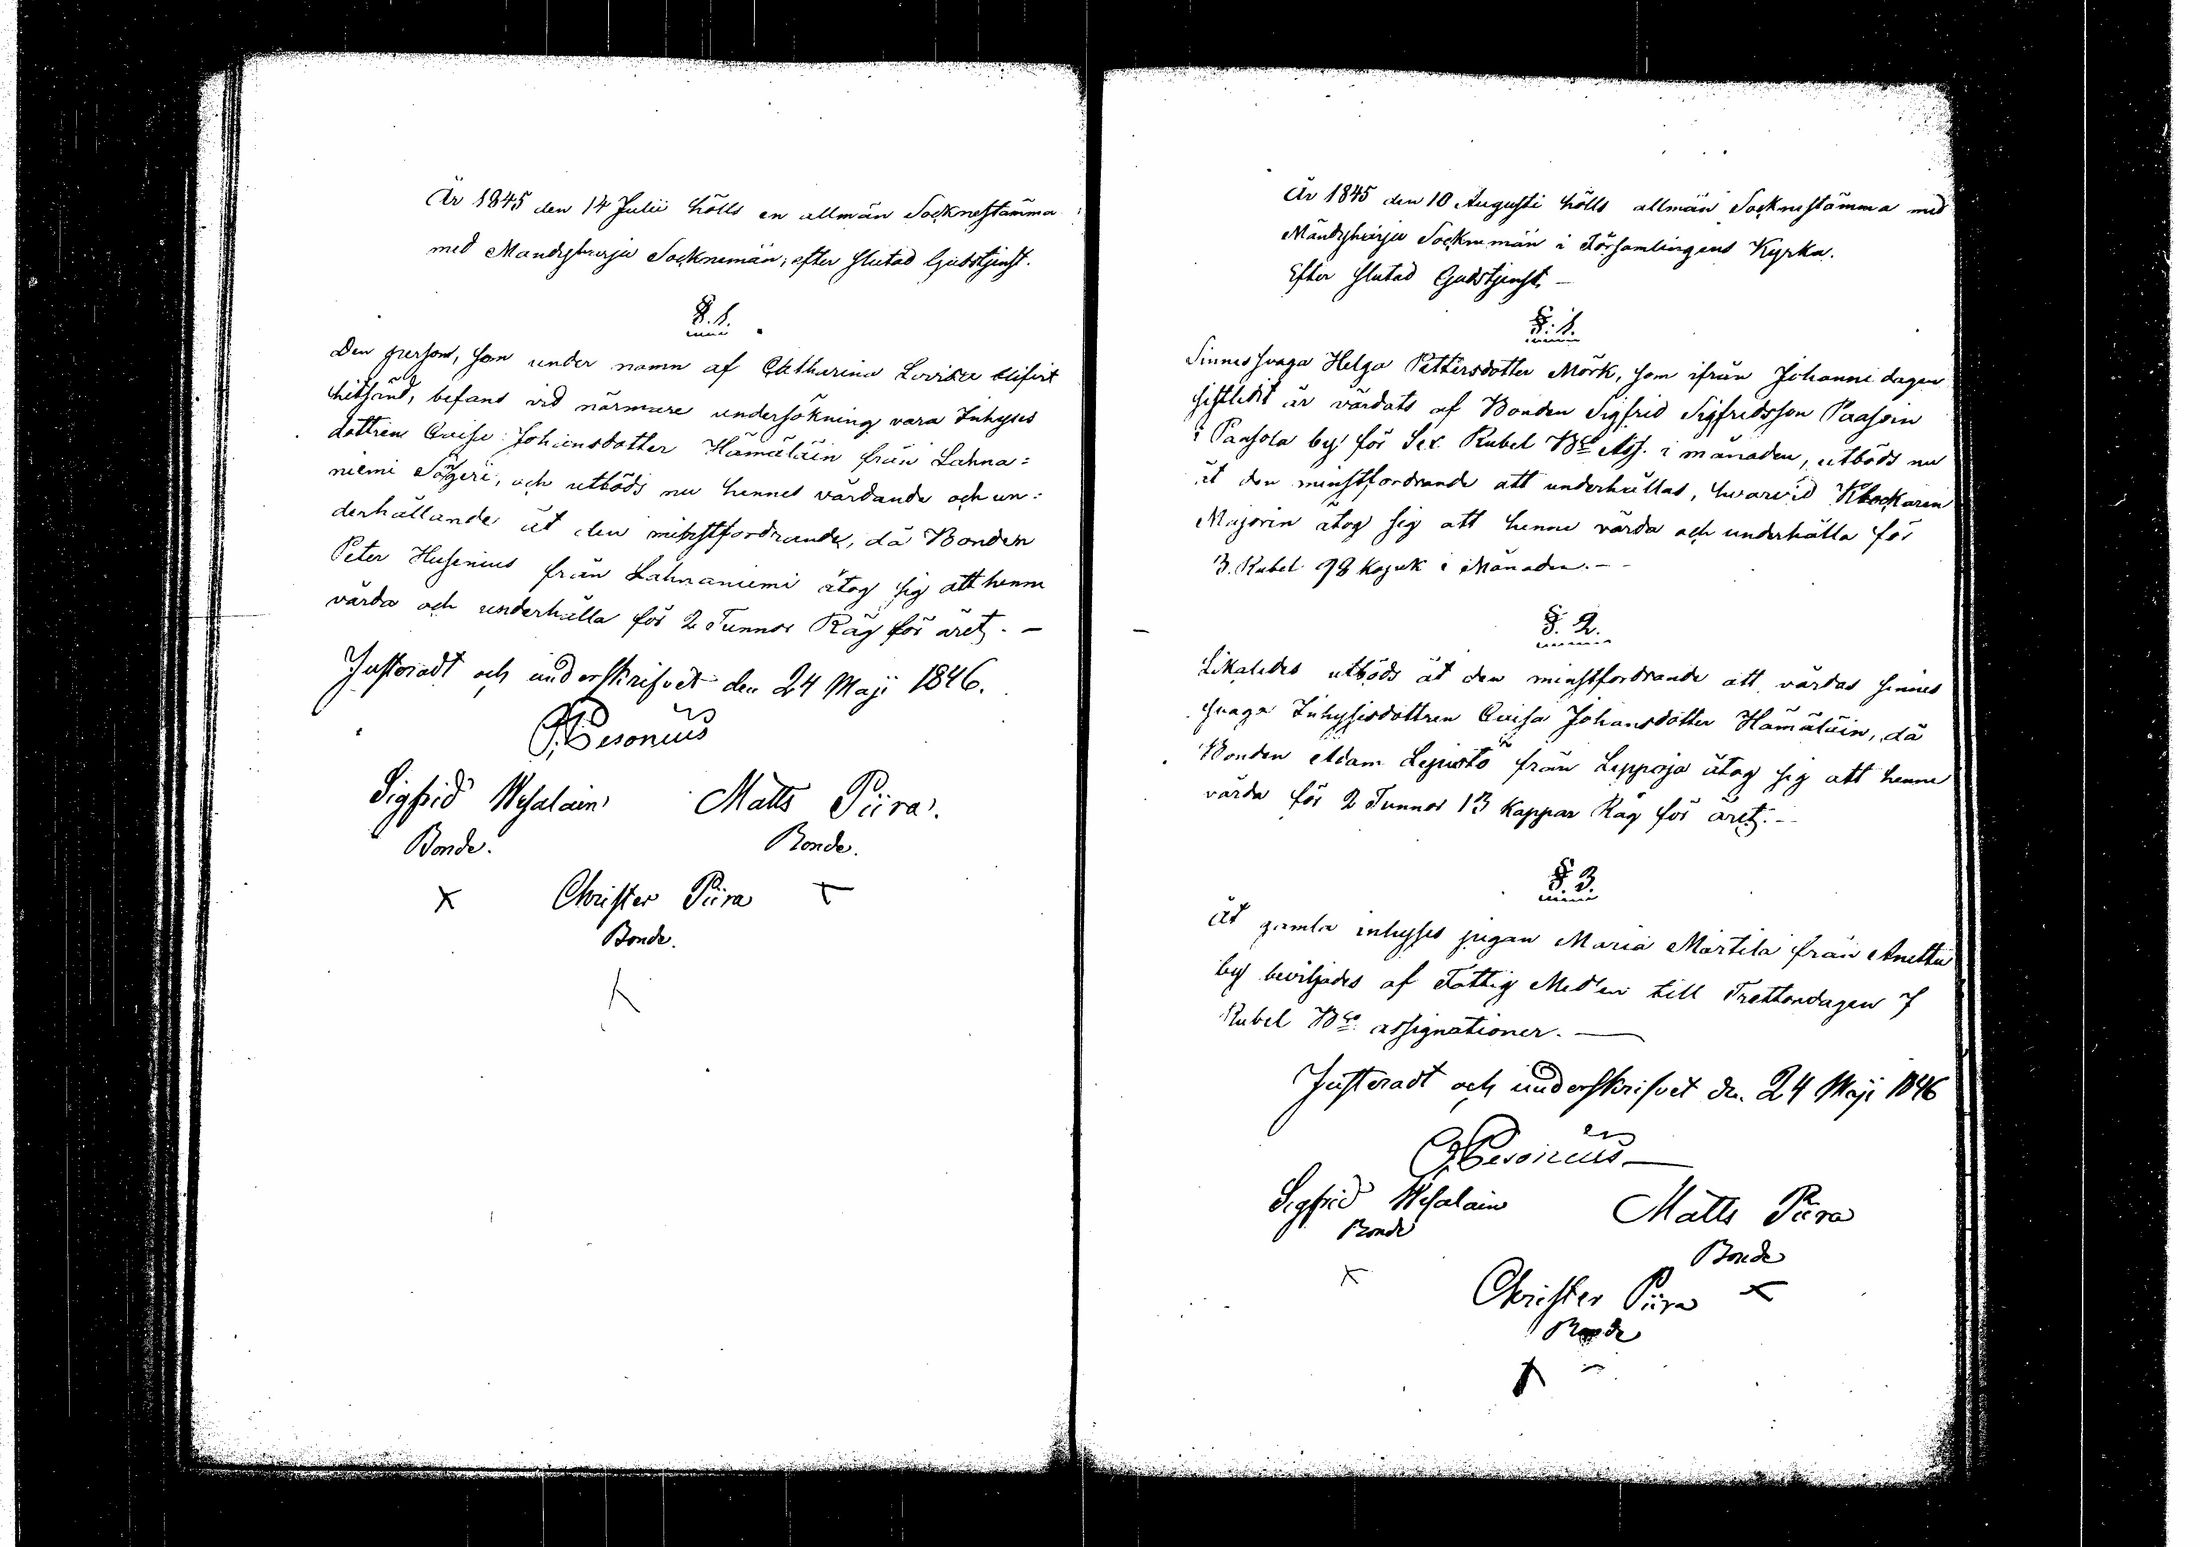 År 1845 den 14 Julii hölls en allmän Socknestämma
med Mandtyharju Socknemän, efter slutad Gudstjenst.
§. 1.
Den person, som under namn af Catharina Lovisa blifvit
hitsänd, befans vid närmare undersökning vara Inhyses
dottren Caisa Johansdotter Hämäläin från Lahna=
niemi Sögeri, och utböds nu hennes vårdande och un=
derhållande åt den minstfordrande, då Bonden
Peter Husenius från Lahnaniemi åtog sig att henne
vårda och underhålla för 2 Tunnor Råg för året. –
Justeradt och underskrifvet den 24 Maji 1846.
Pesonius
Sigfrid Wesalain Matts Piira
Bonde. Bonde.
X Christer Piira X
Bonde.
X
År 1845 den 10 Augusti hölls allmän Socknestämma med
Mändyharju Socknemän i Församlingens Kyrka.
Efter slutad Gudstjenst. –
§. 1.
Sinnessvaga Helga Pettersdotter Mörk, som ifrån Johanni dagen
sistledit år vårdats af Bonden Sigfrid Sigfridsson Paasoin
i Paasola by för Sex Rubel Bco Ass. i månaden, utböds nu
åt den minstfordrande att underhållas, hvarvid Klockaren
Majorin åtog sig att henne vårda och underhålla för
3. Rubel 98 Kopek i Månaden. –
§. 2.
Likaledes utböds åt den minstfordrande att vårdas sinnes
svaga Inhysesdottren Caisa Johansdotter Hämäläin, då
Bonden Adam Lepistö från Lepporja åtog sig att henne
vårda för 2 Tunnor 13 Kappar Råg för året. –
§. 3.
Åt gamla inhyses pigan Maria Märtilä från Anettu
by beviljades af Fattig Med'len till Trettondagen 7
Rubel Bco assignationer. –
Justeradt och underskrifvet den 24 Maji 1846
Pesonius
Sigfrid Wesalain Matts Piira
Bonde Bonde
X Christer Piira X
Bonde
X